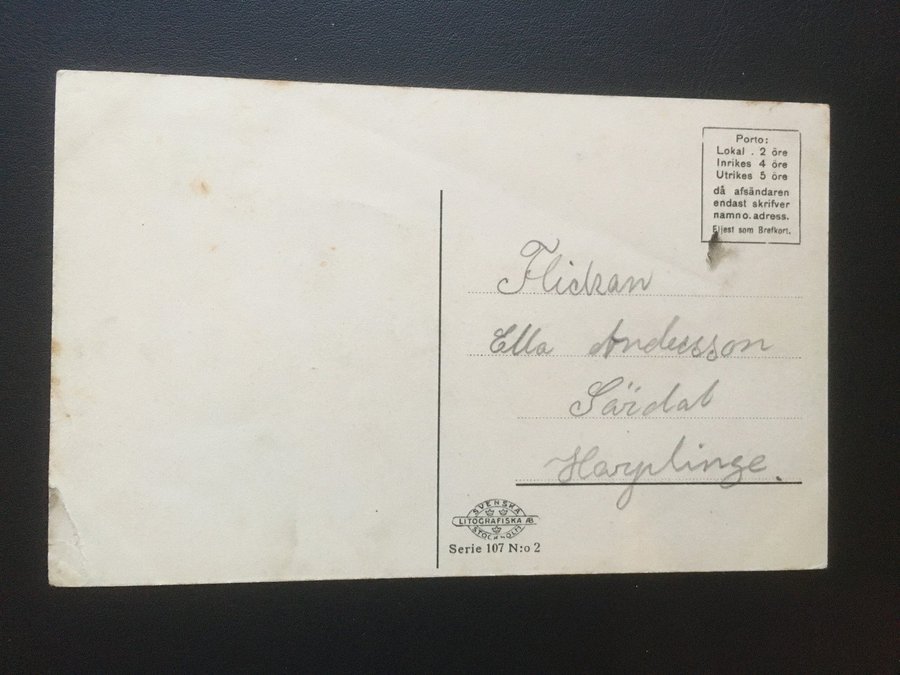 Porto:
Lokal . 2 öre
Inrikes 4 öre
Utrikes 5 öre
då afsändaren
endast skrifver
namn o. adress.
Eljest som Brefkort.
Flickan
Ella Andersson
Harplinge.
SVENSKA
LITOGRAFISKA AB
STOCKHOLM
Serie 107 N:o 2